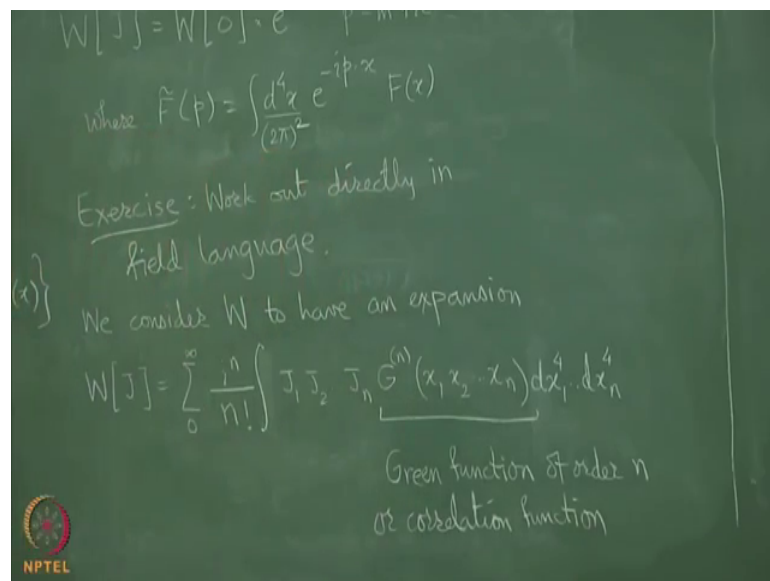 W[J] = W[0] · e
where F̃(p) = ∫ d⁴x/(2π)² e^{-ip·x} F(x)
Exercise: Work out directly in
field language.
(x)}
We consider W to have an expansion
W[J] = ∑₀^∞ iⁿ/n! ∫ J₁ J₂ Jₙ G⁽ⁿ⁾(x₁ x₂ .. xₙ) dx₁⁴ .. dxₙ⁴
Green function of order n
or correlation function
NPTEL